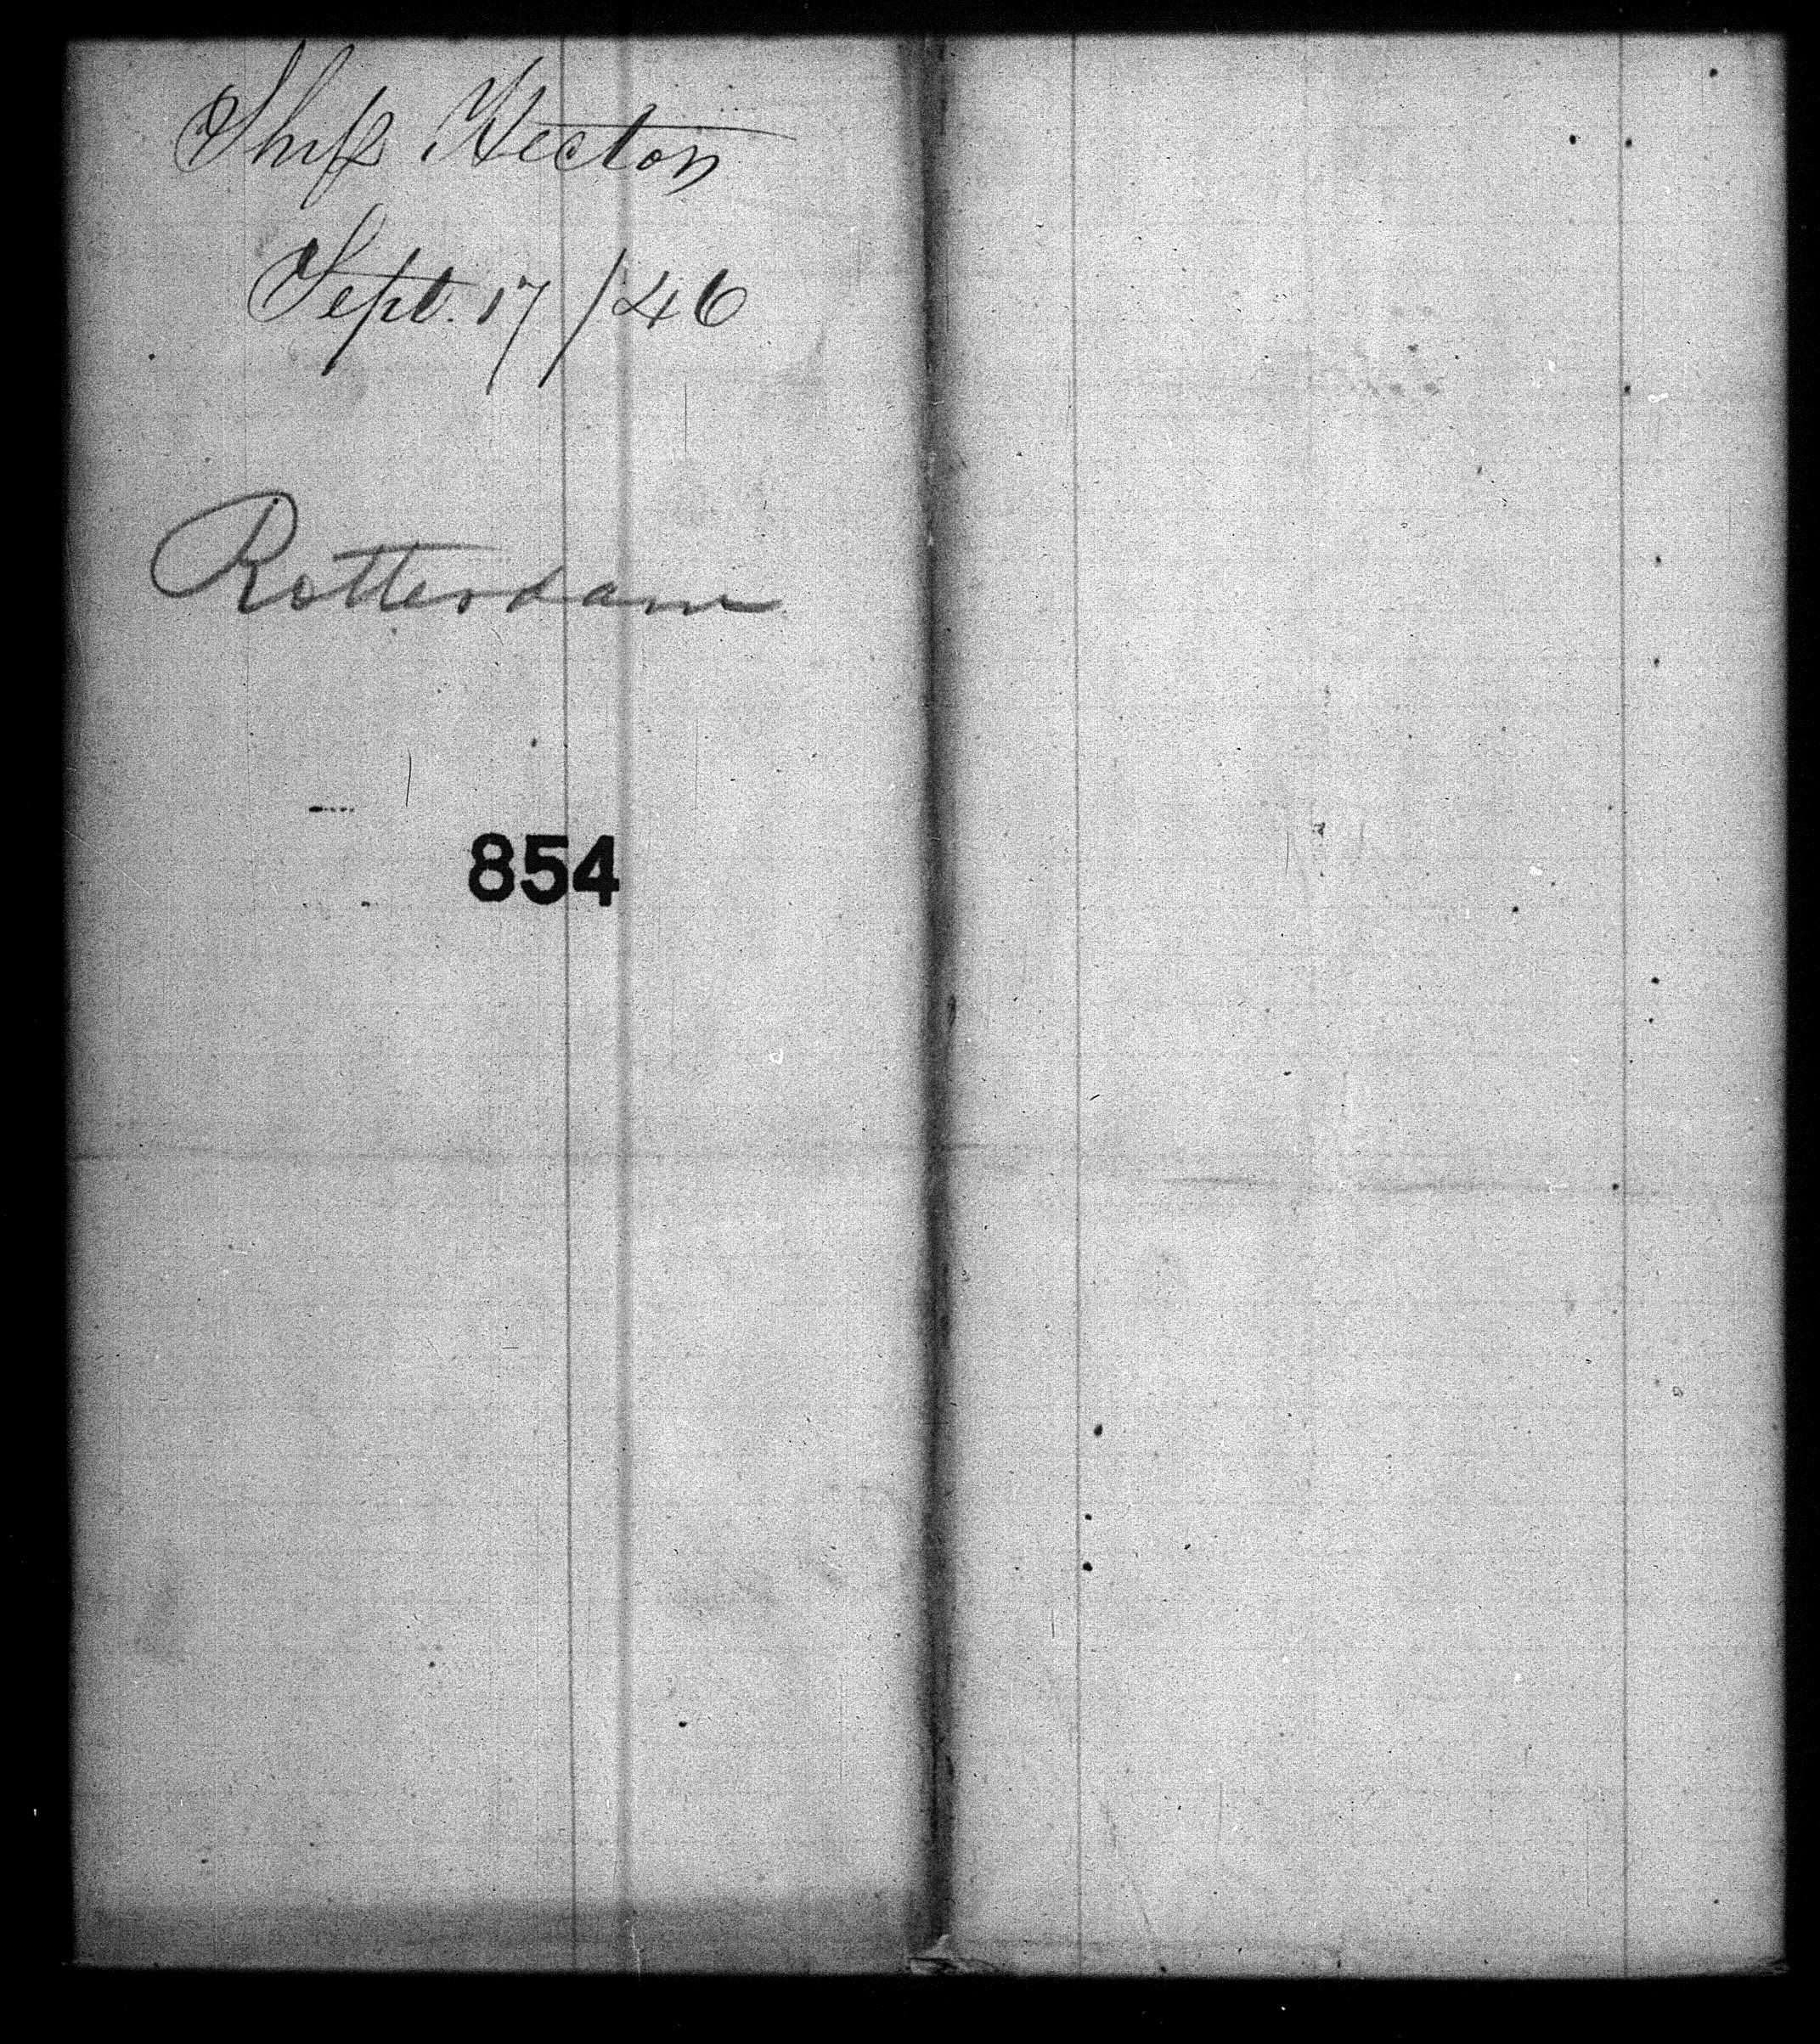 Ship Hector
Sept. 17/46
Rotterdam
854